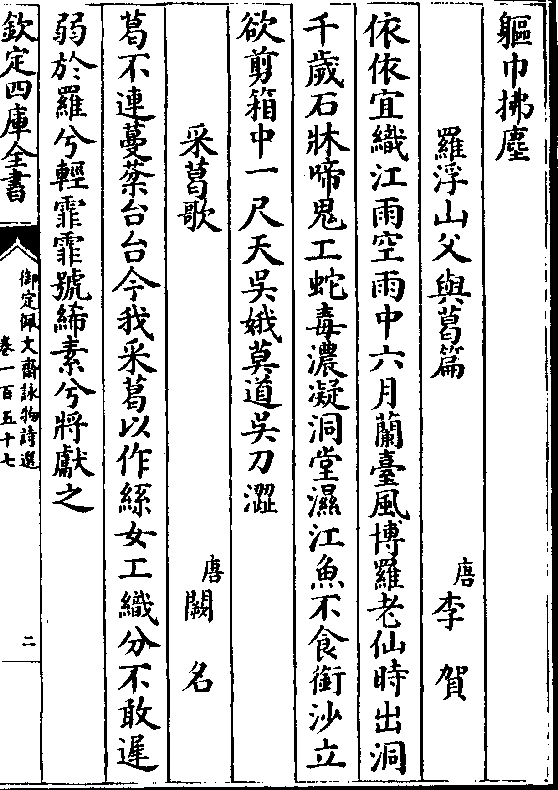 軀巾拂塵
羅浮山父與葛篇
唐李賀
依依宜織江雨空雨中六月蘭臺風博羅老仙時出洞
千歲石牀啼鬼工蛇毒濃凝洞堂濕江魚不食銜沙立
欲剪箱中一尺天吳娥莫道吳刀澀
采葛歌
唐闕名
葛不連蔓棻台台今我采葛以作絲女工織兮不敢遲
弱於羅兮輕霏霏號絺素兮將獻之
欽定四庫全書
御定佩文齋詠物詩選
卷一百五十七
二